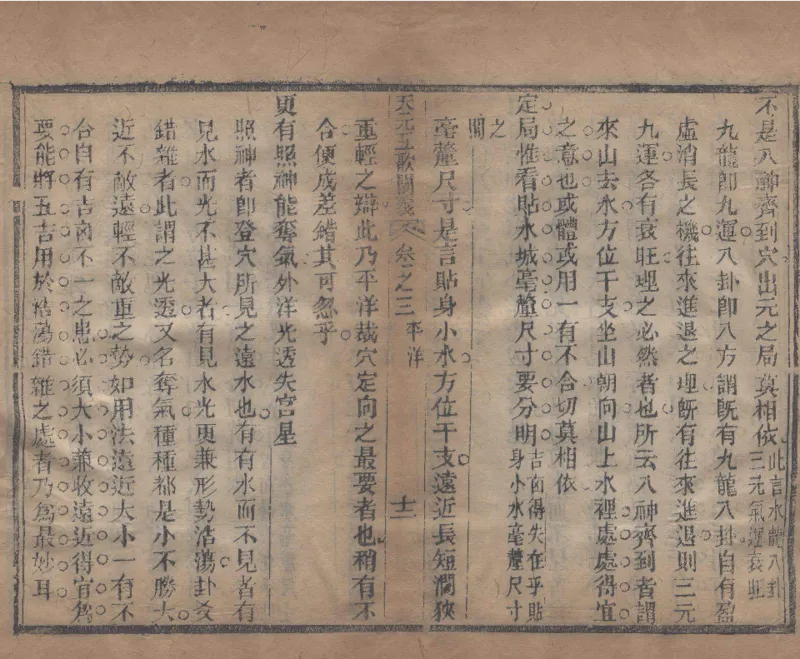 不是八神齊到穴出元之局真相依此言水龍八卦三元氣運衰旺
九龍卽九運八卦卽八方謂旣有九龍八卦自有盈
虛消長之機往來進退之理旣有往來進退則三元
九運各有衰旺理之必然者也所云八神齊到者謂
來山去水方位干支坐山朝向山上水裡處處得宜
之意也或體或用一有不合切莫相依
定局惟看貼水城毫釐尺寸要分明吉凶得失在乎貼身小水毫釐尺寸
之間
毫釐尺寸是言貼身小水方位干支遠近長短濶狹
天元五歌闡義 卷之三 平洋 十二
重輕之辯此乃平洋裁穴定向之最要者也稍有不
合便成差錯其可忽乎
更有照神能奪氣外洋光透失宮星
照神者卽登穴所見之遠水也有有水而不見者有
見水而光不甚大者有見水光更兼形勢浩蕩卦爻
錯雜者此謂之光透又名奪氣種種都是小不勝大
近不敵遠輕不敵重之勢如用法遠近大小一有不
合自有吉凶不一之患必須大小兼收遠近得宜爲
要能將五吉用於浩蕩錯雜之處者乃爲最妙耳